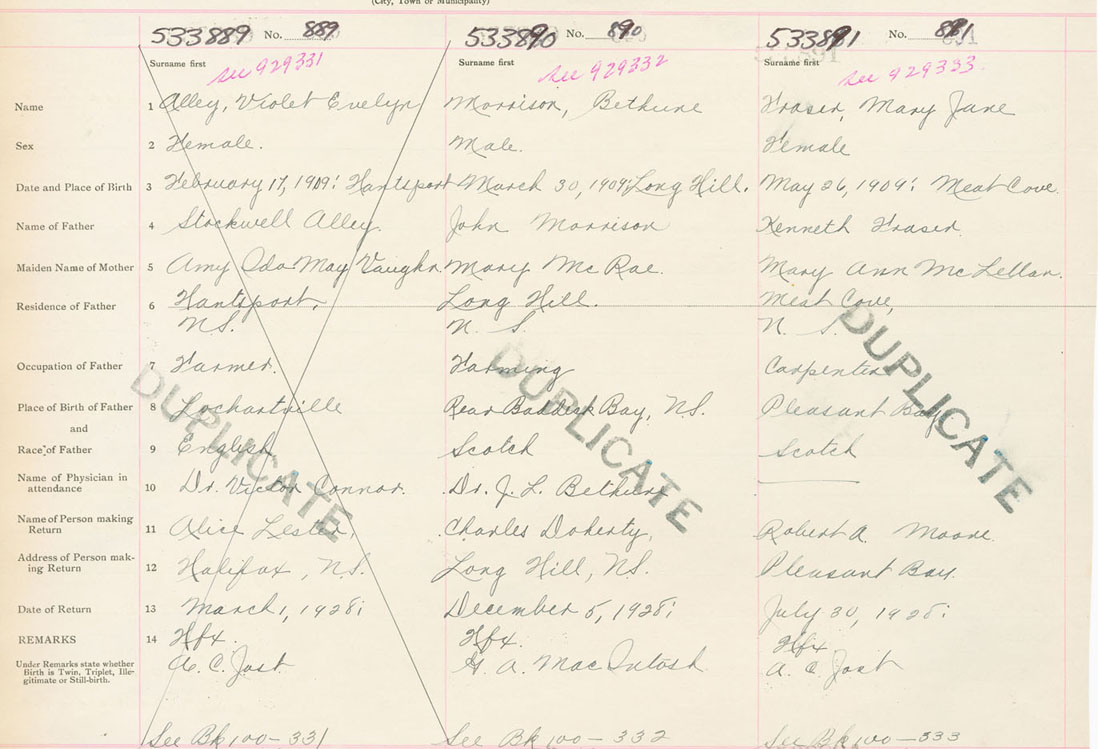 (City, Town or Municipality)
533889 No. 889 533890 No. 890 533891 No. 891
Surname first see 929331 Surname first see 929332 Surname first see 929333
Name 1 Alley, Violet Evelyn Morrison, Bethune Fraser, Mary Jane
Sex 2 Female. Male. Female
Date and Place of Birth 3 February 17, 1909: Hantsport March 30, 1909; Long Hill. May 26, 1909: Meat Cove.
Name of Father 4 Stockwell Alley. John Morrison Kenneth Fraser.
Maiden Name of Mother 5 Amy Ida May Vaughn Mary Mc Rae. Mary Ann McLellan.
Residence of Father 6 Hantsport, Long Hill. Meat Cove,
N.S. N. S. N. S.
Occupation of Father 7 Farmer. Farming Carpenter
Place of Birth of Father 8 Lochartville Rear Baddeck Bay, N.S. Pleasant Bay.
and
Race of Father 9 English Scotch Scotch
Name of Physician in
attendance 10 Dr. Victor Connor. Dr. J. L. Bethune
Name of Person making
Return 11 Alice Lester, Charles Doherty, Robert A. Moore.
Address of Person mak-
ing Return 12 Halifax, N.S. Long Hill, N.S. Pleasant Bay.
Date of Return 13 March 1, 1928; December 5, 1928; July 30, 1928;
REMARKS 14 Hfx. Hfx. Hfx
Under Remarks state whether
Birth is Twin, Triplet, Ille-
gitimate or Still-birth.
A. C. Jost A. MacIntosh A. C. Jost
See Bk 100-331 See Bk 100-332 See Bk 100-333
DUPLICATE DUPLICATE DUPLICATE